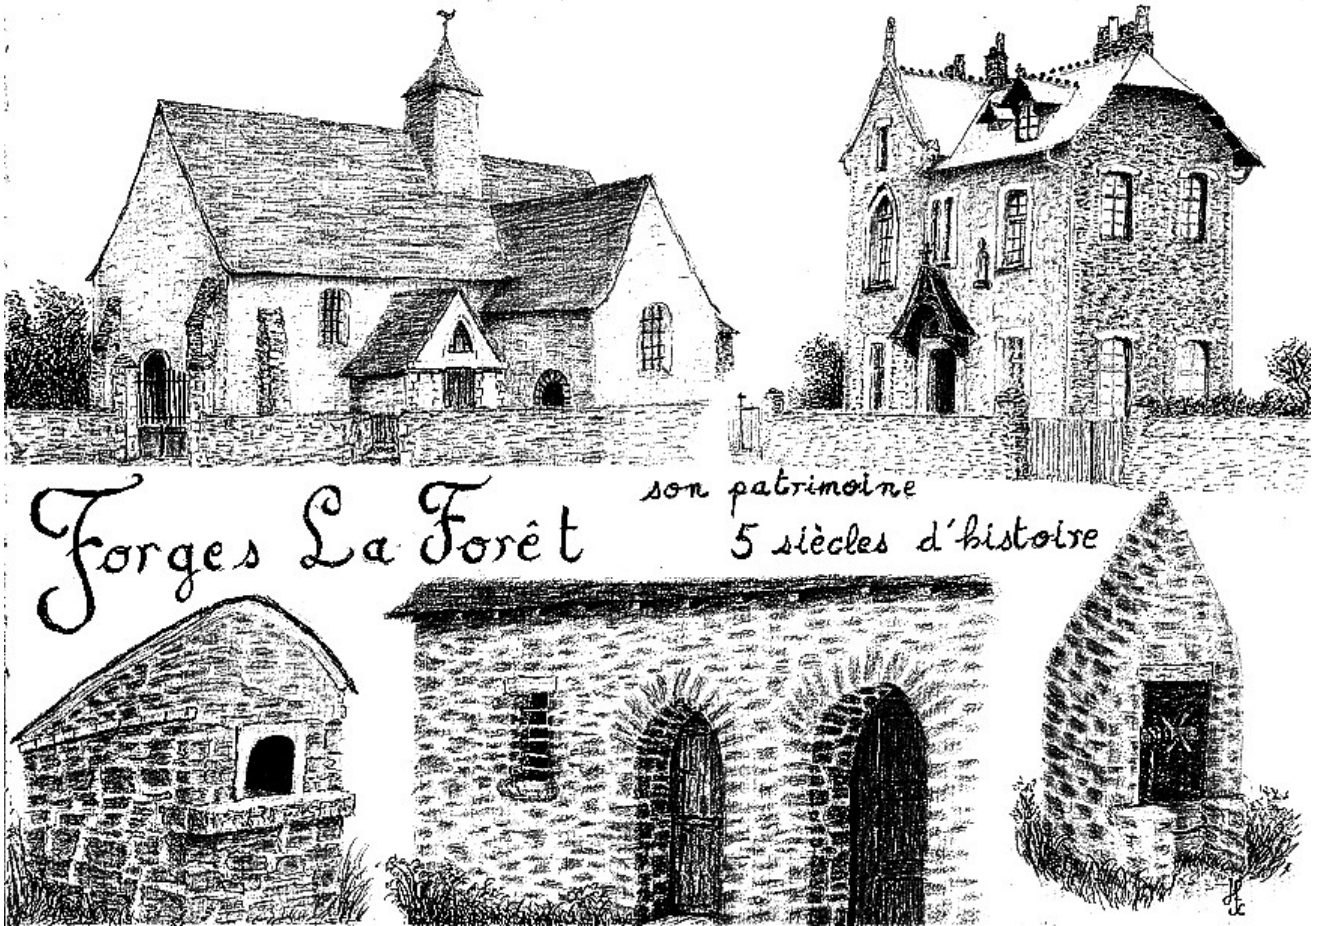 Forges La Forêt
son patrimoine
5 siècles d'histoire